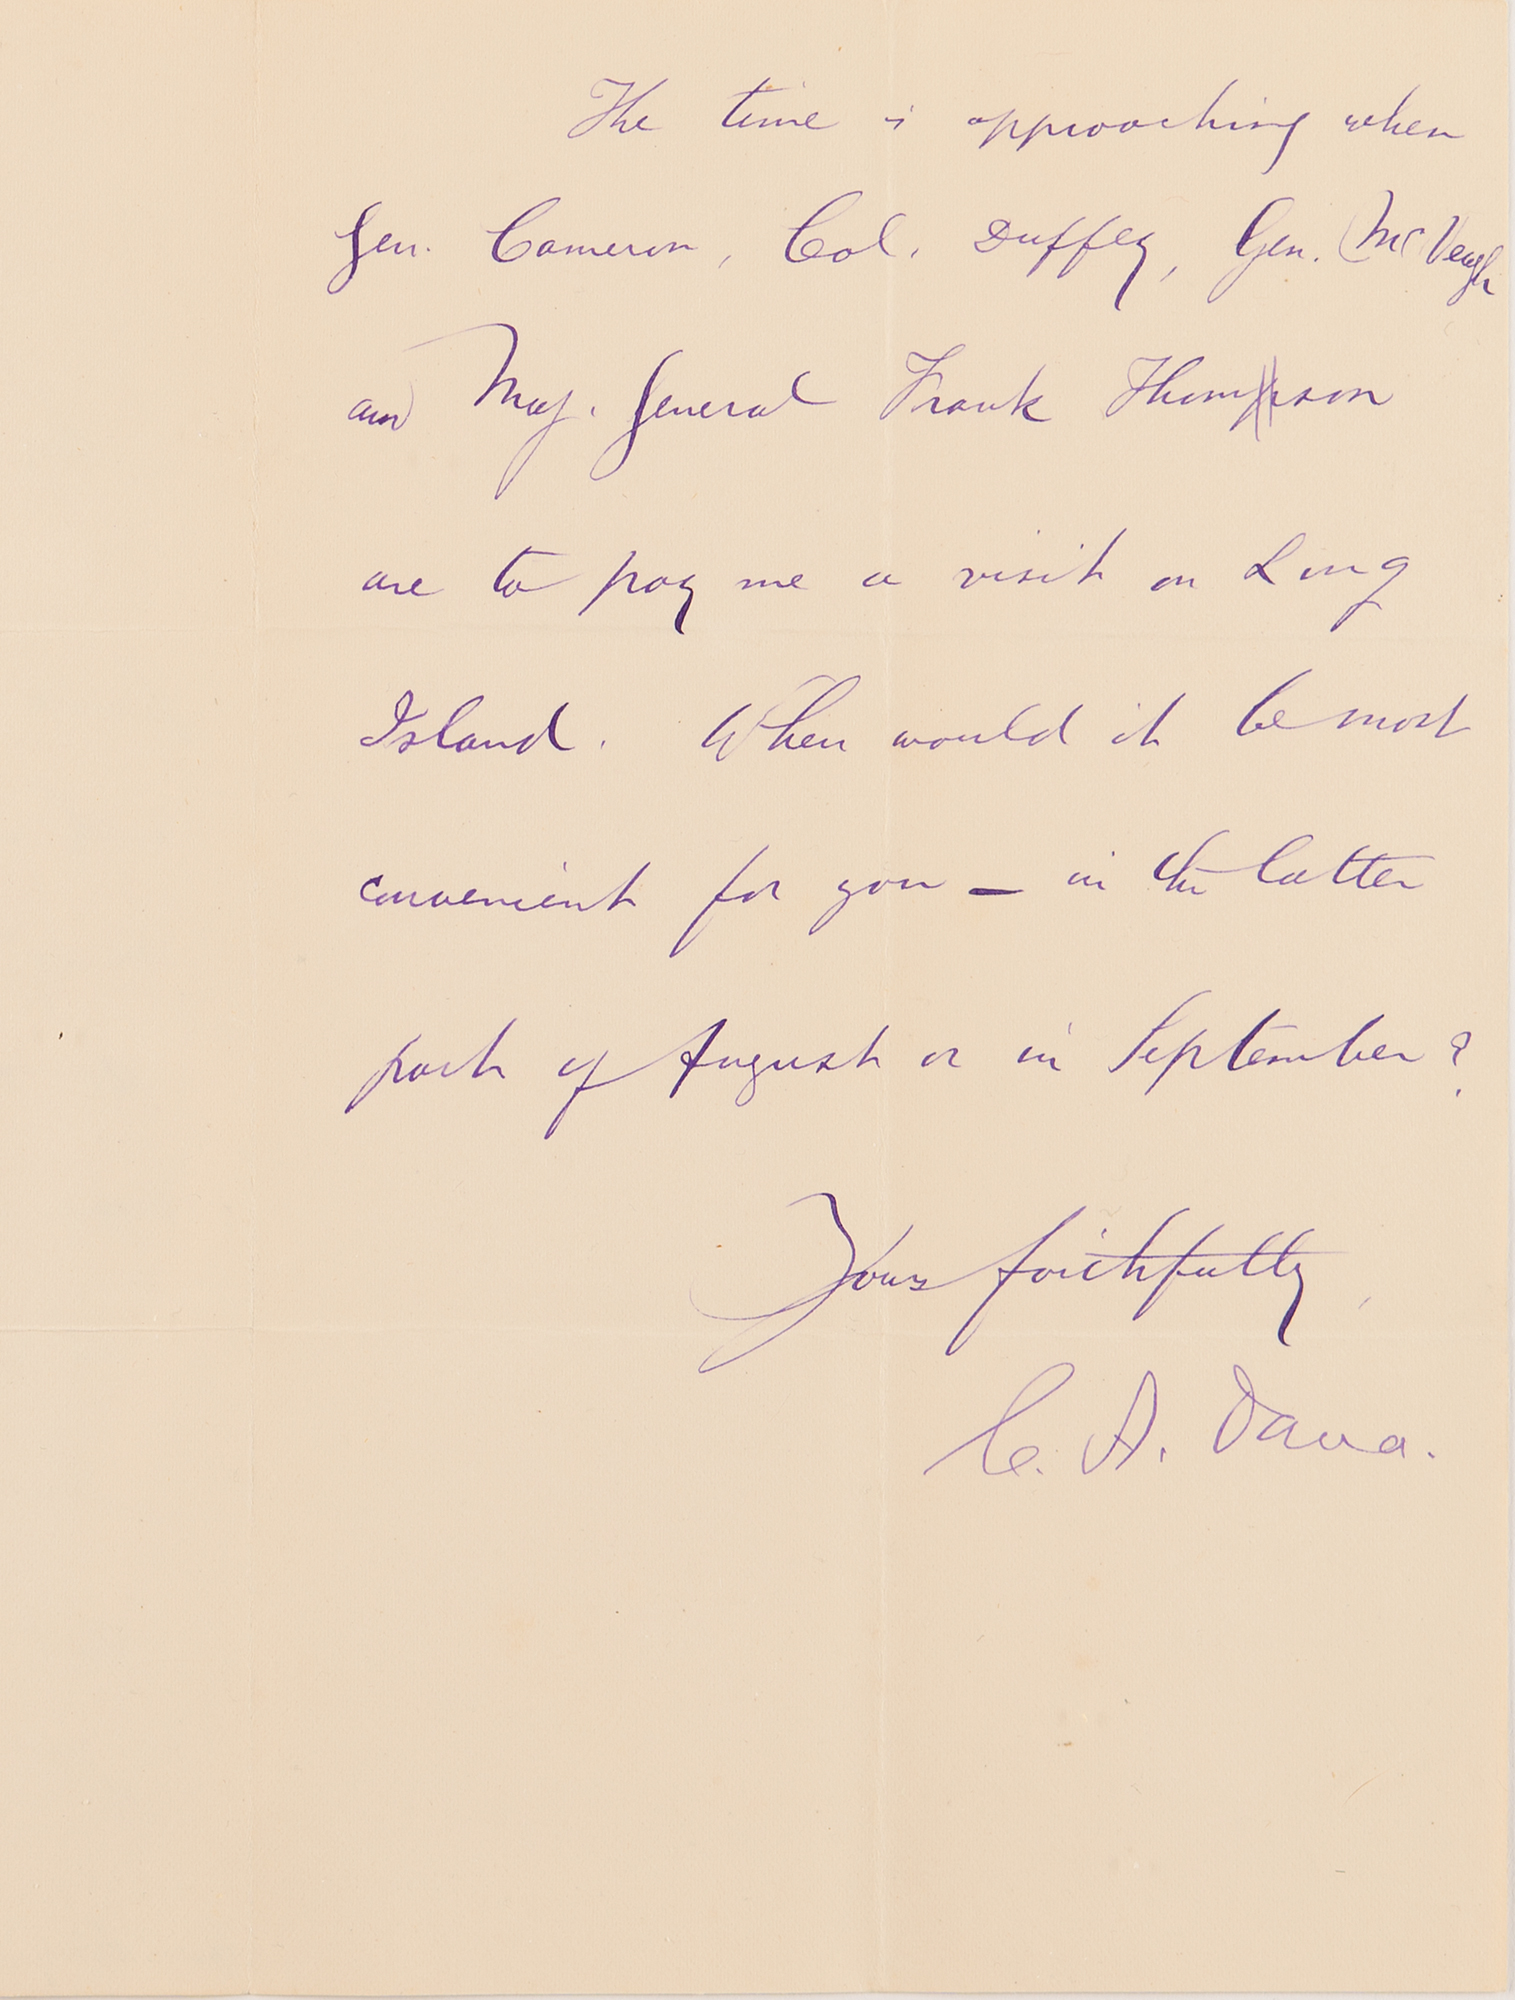 The time is approaching when
Gen. Cameron, Col. Duffey, Gen. McVeagh
and Maj. General Frank Thomson
are to pay me a visit on Long
Island. When would it be most
convenient for you — in the latter
part of August or in September?
Yours faithfully,
C. A. Dana.